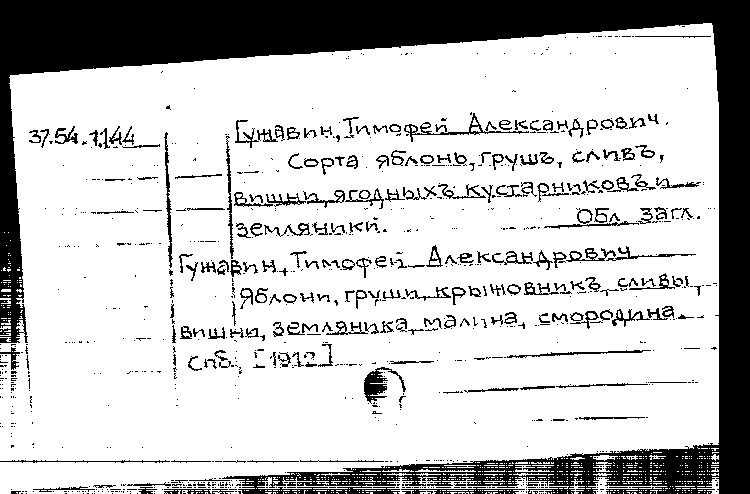 37.54.1144
Гужавин, Тимофей Александрович.
Сорта яблонь, грушъ, сливъ,
вишни, ягодныхъ кустарниковъ и
земляники. Обл. загл.
Гужавин, Тимофей Александрович
Яблони, груши, крыжовникъ, сливы,
вишни, земляника, малина, смородина.
Спб., [1912]